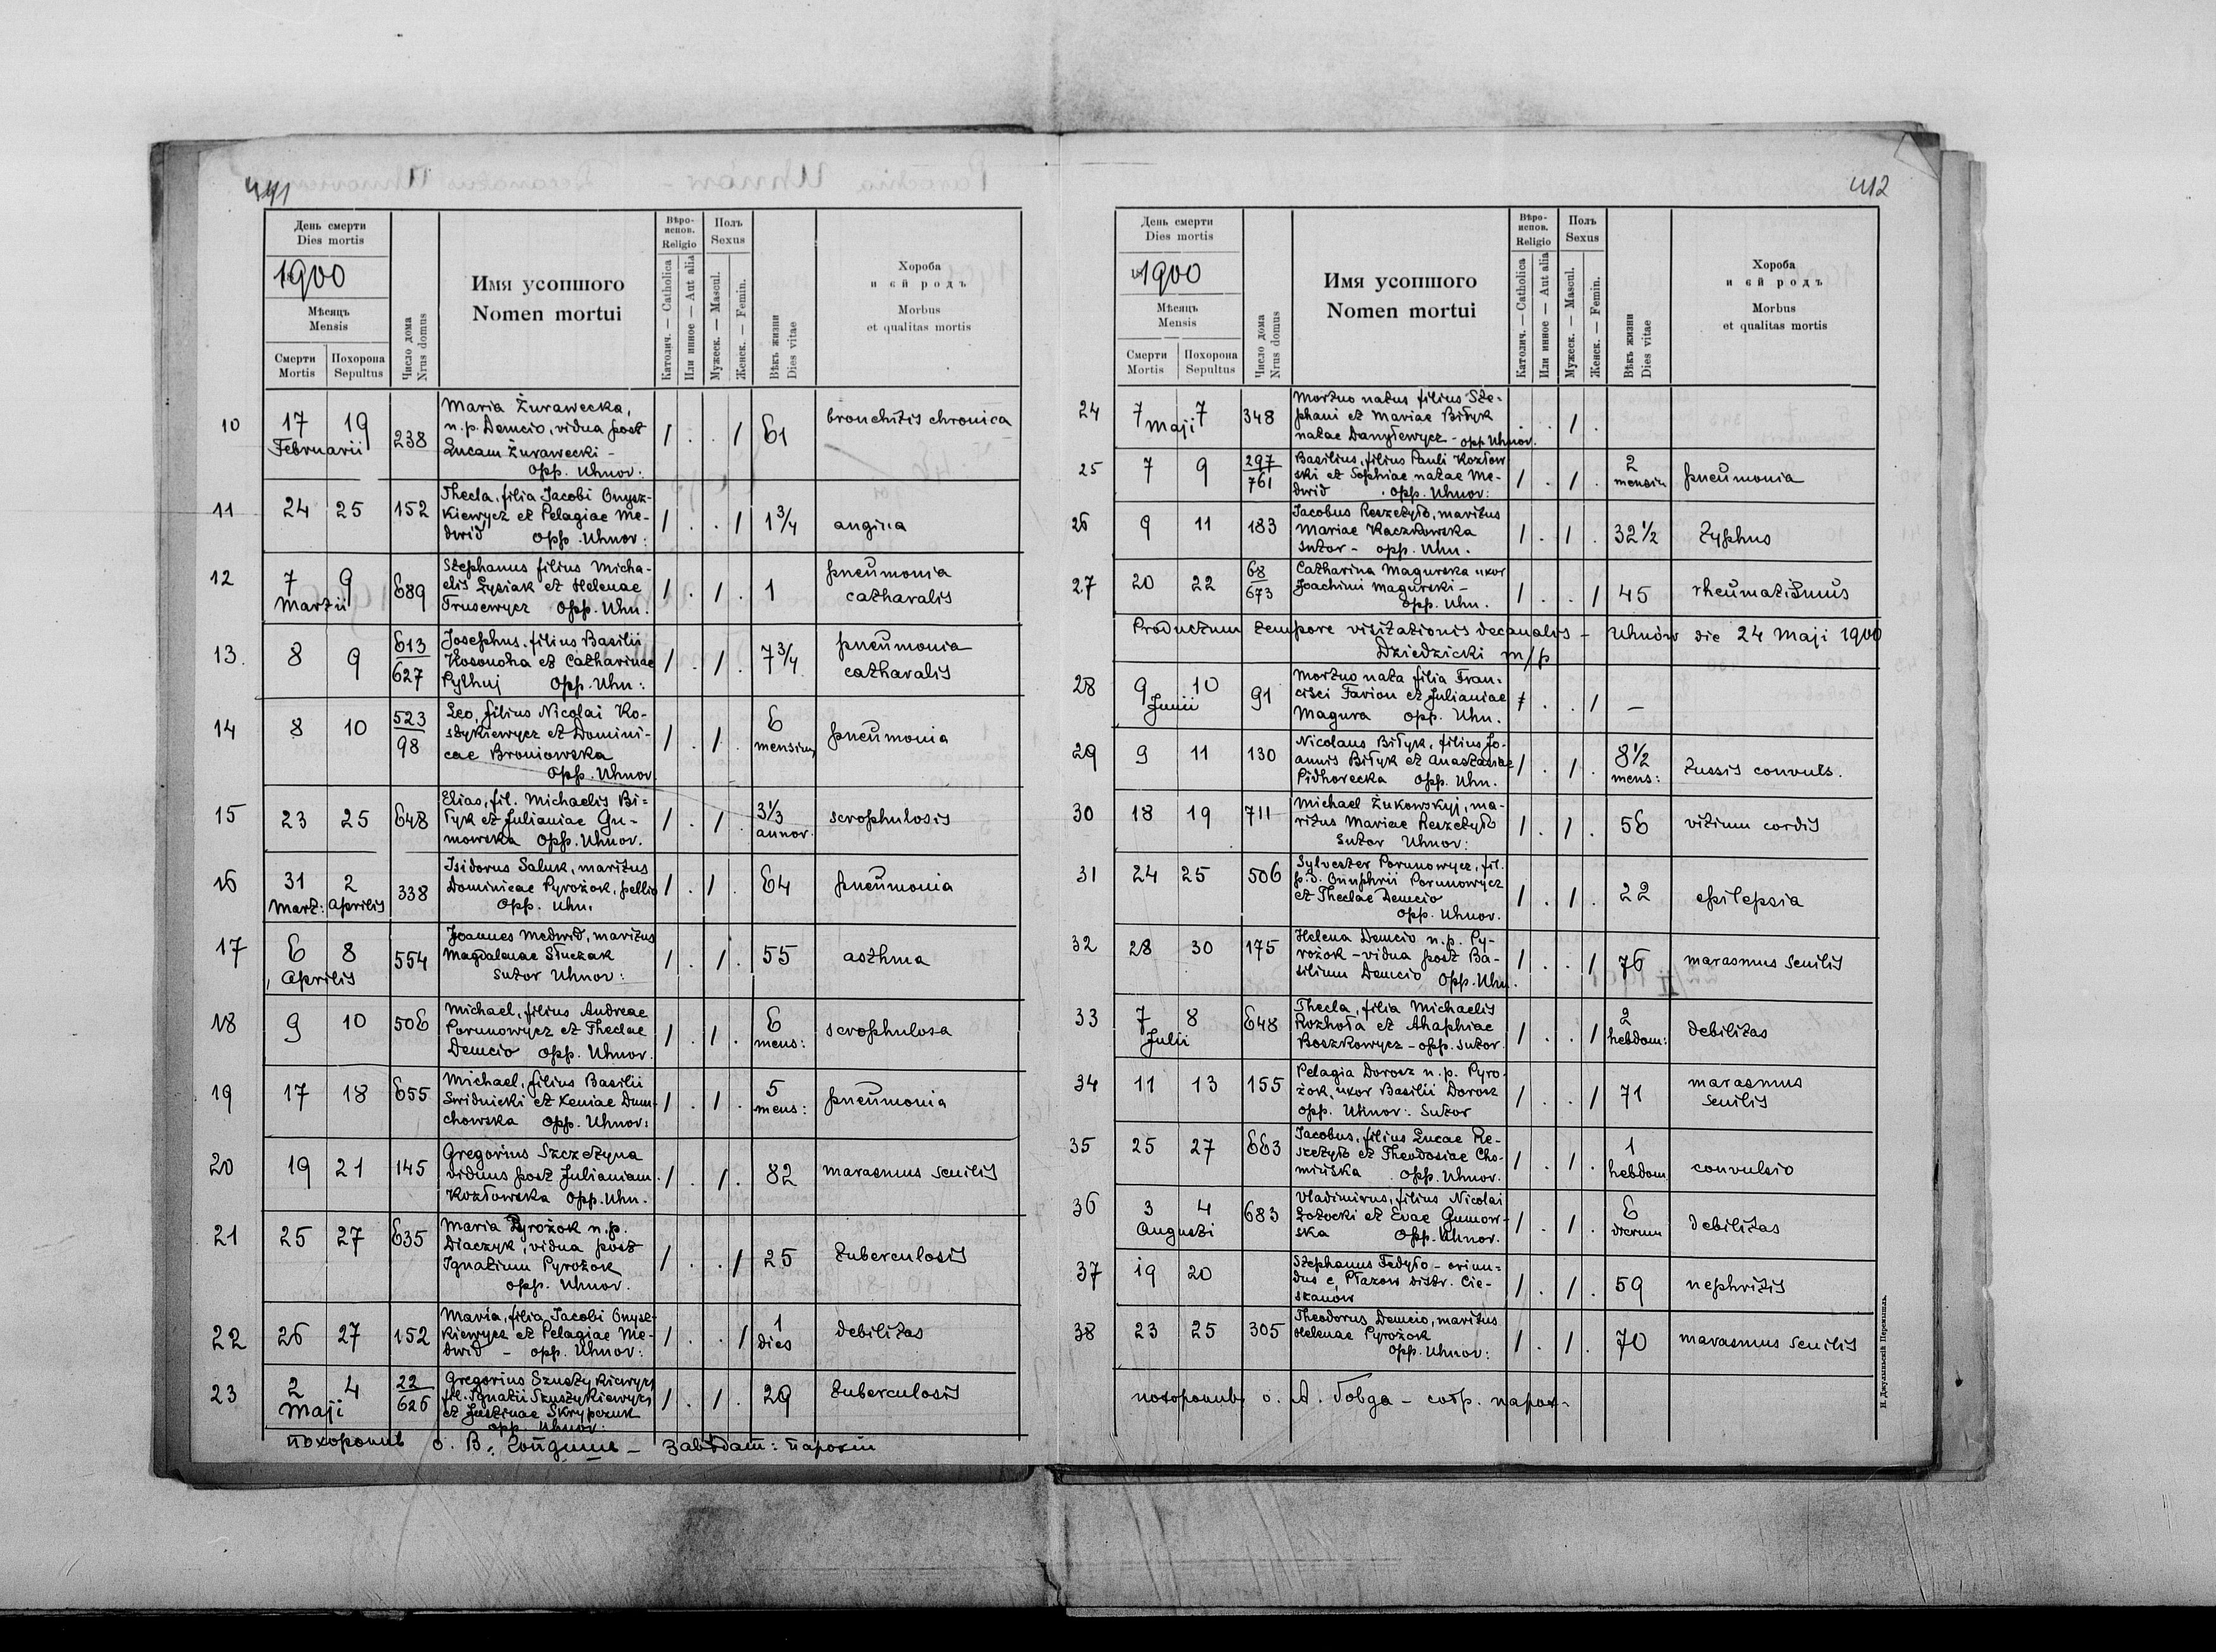 411
День смерти
Dies mortis
1900
Мѣсяцъ
Mensis
Смерти
Mortis
Похорона
Sepultus
Число дома
Nrus domus
Имя усопшого
Nomen mortui
Вѣро-
испов.
Religio
Католич. — Catholica
Или инное — Aut alia
Полъ
Sexus
Мужеск. — Mascul.
Женск. — Femin.
Вѣкъ жизни
Dies vitae
Хороба
и єй родъ
Morbus
et qualitas mortis
10 17 19 Februarii 238
Maria Żurawecka,
n. p. Demcio, vidua post
Lucam Żurawecki –
opp. Uhnov:
/ . . / 61 bronchitis chronica
11 24 25 152
Thecla, filia Jacobi Onysz-
kiewycz et Pelagiae Me-
dwid opp. Uhnov:
/ . . / 1 3/4 angina
12 7 9 Martii 689
Stephanus filius Micha-
elis Lysiak et Helenae
Trusewycz opp. Uhn.
/ . / . 1 pneumonia
catharalis
13. 8 9 613/627
Josephus, filius Basilii
Kosonoha et Catharinae
Pylhuj opp. Uhn:
/ . / . 7 3/4 pneumonia
catharalis
14 8 10 523/98
Leo, filius Nicolai Ko-
stykiewycz et Domini-
cae Broniowska
opp. Uhnov.
/ . / . 6 mensium pneumonia
15 23 25 648
Elias, fil. Michaelis Bi=
łyk et Julianiae Gu-
mowska opp. Uhnov.
/ . / . 3 1/3 annor. scrophulosis
16 31 Mart: 2 Aprilis 338
Isidorus Saluk, maritus
Dominicae Pyrożok, pellio
opp. Uhn.
/ . / . 64 pneumonia
17 6 8 Aprilis 554
Joannes Medwid, maritus
Magdalenae Słuczak
sutor Uhnov:
/ . / . 55 asthma
18 9 10 506
Michael, filius Andreae
Porunowycz et Theclae
Demcio opp. Uhnov.
/ . / . 6 mens: scrophulosa
19 17 18 655
Michael, filius Basilii
Swidnicki et Xeniae Dum-
chowska opp. Uhnov:
/ . / . 5 mens: pneumonia
20 19 21 145
Gregorius Szczetyna
viduus post Julianiam
Kozłowska opp. Uhn.
/ . / . 82 marasmus senilis
21 25 27 635
Maria Pyrożok n. p.
Diaczyk, vidua post
Ignatium Pyrożok
opp. Uhnov.
/ . . / 25 tuberculosis
22 26 27 152
Maria, filia Jacobi Onysz-
kiewycz et Pelagiae Me-
dwid – opp. Uhnov:
/ . . / 1 dies debilitas
23 2 4 Maji 22/626
Gregorius Szustykiewycz
fil. Ignatii Szustykiewycz
et Justinae Skrypczuk
opp. Uhnov:
/ . / . 29 tuberculosis
похоронивъ о. В. – завѣдат: парохіи
412
День смерти
Dies mortis
1900
Мѣсяцъ
Mensis
Смерти
Mortis
Похорона
Sepultus
Число дома
Nrus domus
Имя усопшого
Nomen mortui
Вѣро-
испов.
Religio
Католич. — Catholica
Или инное — Aut alia
Полъ
Sexus
Мужеск. — Mascul.
Женск. — Femin.
Вѣкъ жизни
Dies vitae
Хороба
и єй родъ
Morbus
et qualitas mortis
24 7 7 Maji 348
Mortuo natus filius Ste-
phani et Mariae Biłyk
natae Danyłewycz – opp. Uhnov.
. . / .
25 7 9 297/761
Basilius, filius Pauli Kozłow
ski et Sophiae natae Me-
dwid . opp. Uhnov:
/ . / . 2 mensiu pneumonia
26 9 11 183
Jacobus Reszetyło, maritus
Mariae Kaczkowska
sutor – opp. Uhn.
/ . / . 32 1/2 typhus
27 20 22 68/673
Catharina Magurska uxor
Joachimi Magurski –
opp. Uhn.
/ . . / 45 rheumatismus
Productum tempore visitationis decanalis – Uhnów die 24 Maji 1900
Dziedzicki m/p
28 9 10 Junii 91
Mortuo nata filia Fran-
cisci Farion et Julianiae
Magura opp. Uhn.
/ . . / –
29 9 11 130
Nicolaus Biłyk, filius Jo-
annis Biłyk et Anastasiae
Pidhorecka opp. Uhn.
/ . / . 8 1/2 mens: tussis convuls.
30 18 19 711
Michael Żukowskyj, ma-
ritus Mariae Reszetyło
sutor Uhnov:
/ . / . 56 vitium cordis
31 24 25 506
Sylvester Porunowycz, fil.
p. d. Onuphrii Porunowycz
et Theclae Demcio
opp. Uhnov.
/ . / . 22 epilepsia
32 28 30 175
Helena Demcio n. p. Py-
rożok – vidua post Ba-
silium Demcio opp. Uhn.
/ . . / 76 marasmus senilis
33 7 8 Julii 648
Thecla, filia Michaelis
Rozhoła et Ahaphiae
Boszkowycz – opp. sutor.
/ . . / 2 hebdom: debilitas
34 11 13 155
Pelagia Dorosz n. p. Pyro-
żok, uxor Basilii Dorosz
opp. Uhnov: sutor
/ . . / 71 marasmus
senilis
35 25 27 663
Jacobus, filius Lucae Re-
szetyło et Theodosiae Cho-
mińska . opp. Uhnov.
/ . / . 1 hebdom convulsio
36 3 4 Augusti 683
Vladimirus, filius Nicolai
Łotocki et Evae Gumow-
ska opp. Uhnov.
/ . / . 6 dierum debilitas
37 19 20
Stephanus Fedyło – oriun-
dus e Płazow distr. Cie-
szanów
/ . / . 59 nephritis
38 23 25 305
Theodorus Demcio, maritus
Helenae Pyrożok
opp. Uhnov:
/ . / . 70 marasmus senilis
похоронивъ о. А. – сотр. парох.
Н. Джулыньскій Перемышль.